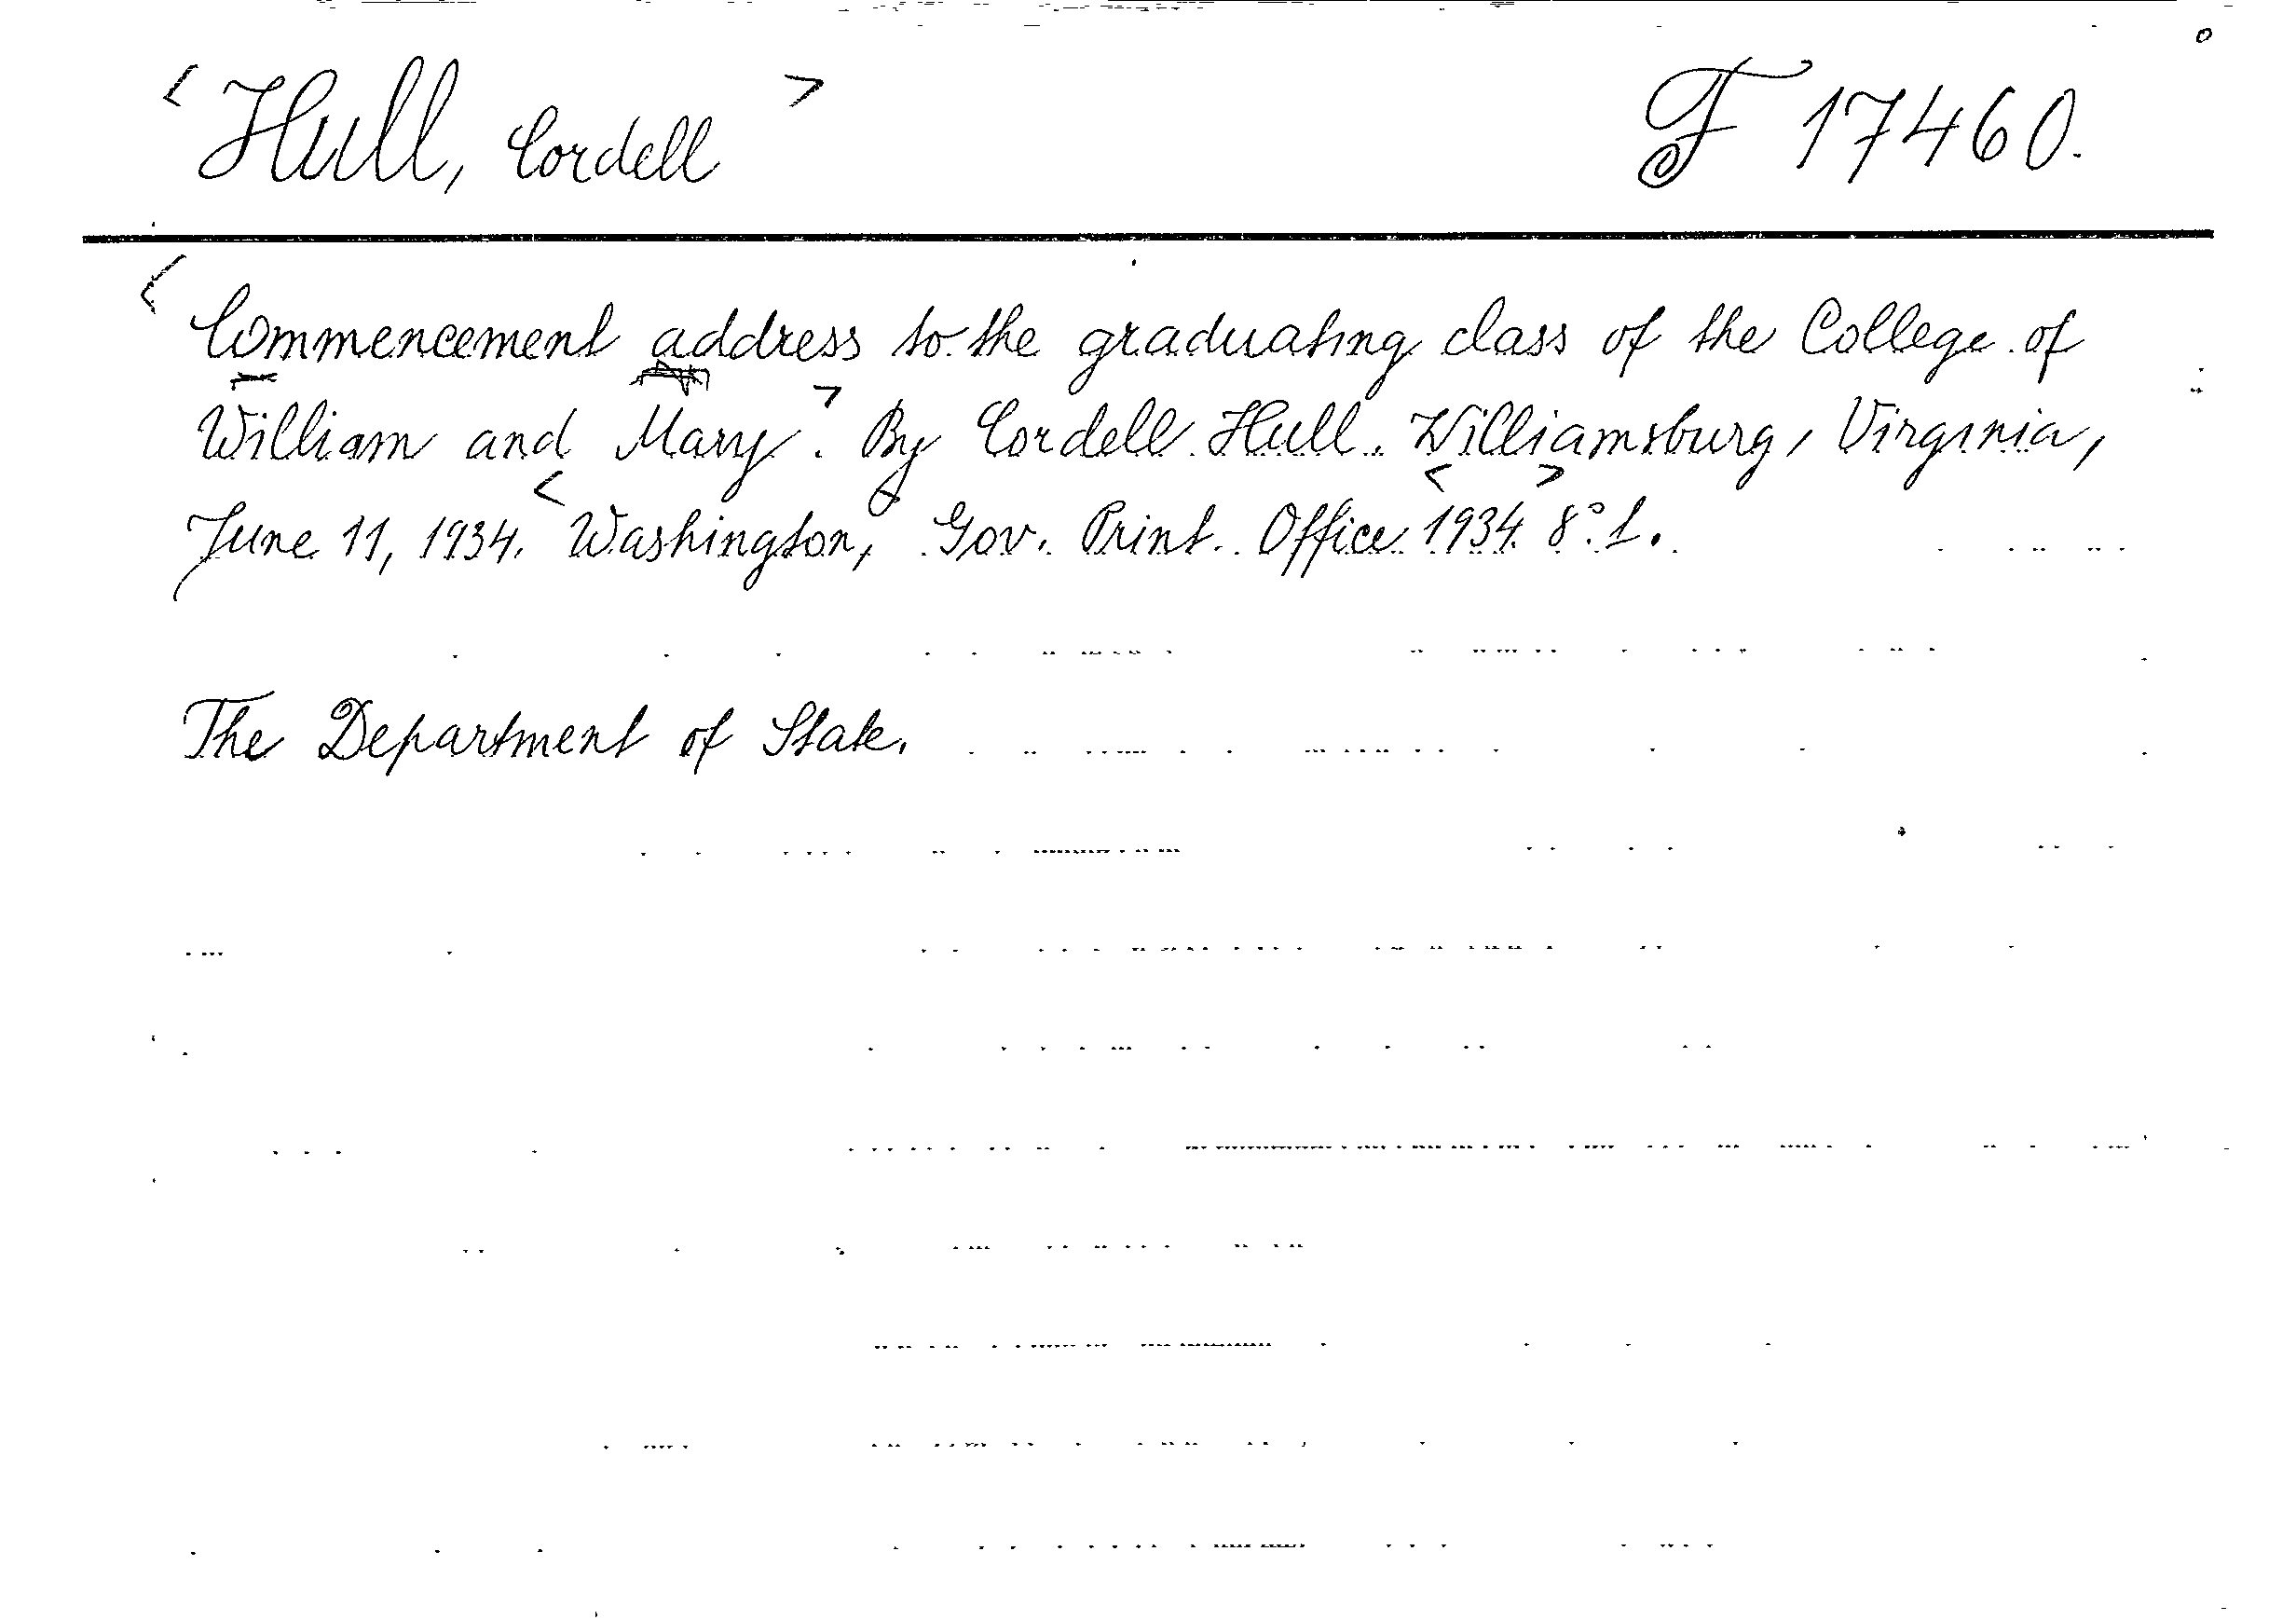 <Hull, Cordell> F 17460.
<Commencement address to the graduating class of the College of
William and Mary>. By Cordell Hull. Williamsburg, Virginia,
June 11, 1934. <Washington, Gov. Print. Office <1934.> 8° 1.
The Department of State.